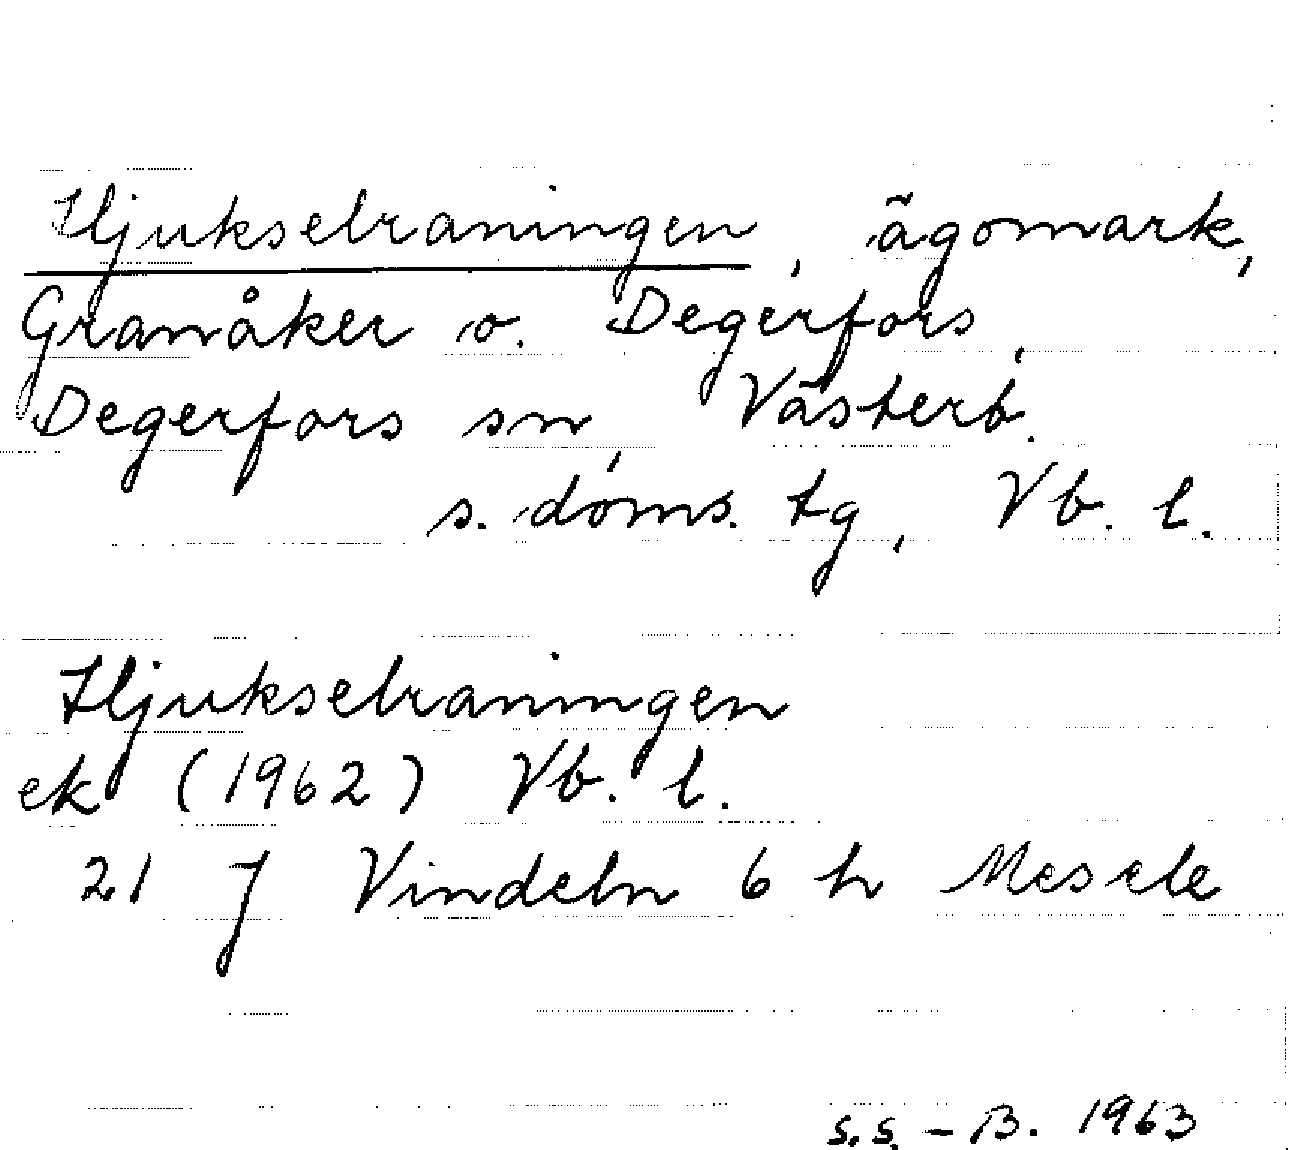 Hjukselraningen, ägomark,
Granåker o. Degerfors,
Degerfors sn, Västerb.
s. doms. tg, Vb. l.
Hjukselraningen
ek (1962) Vb. l.
21 J Vindeln 6 h Mesele
s.s. - B. 1963